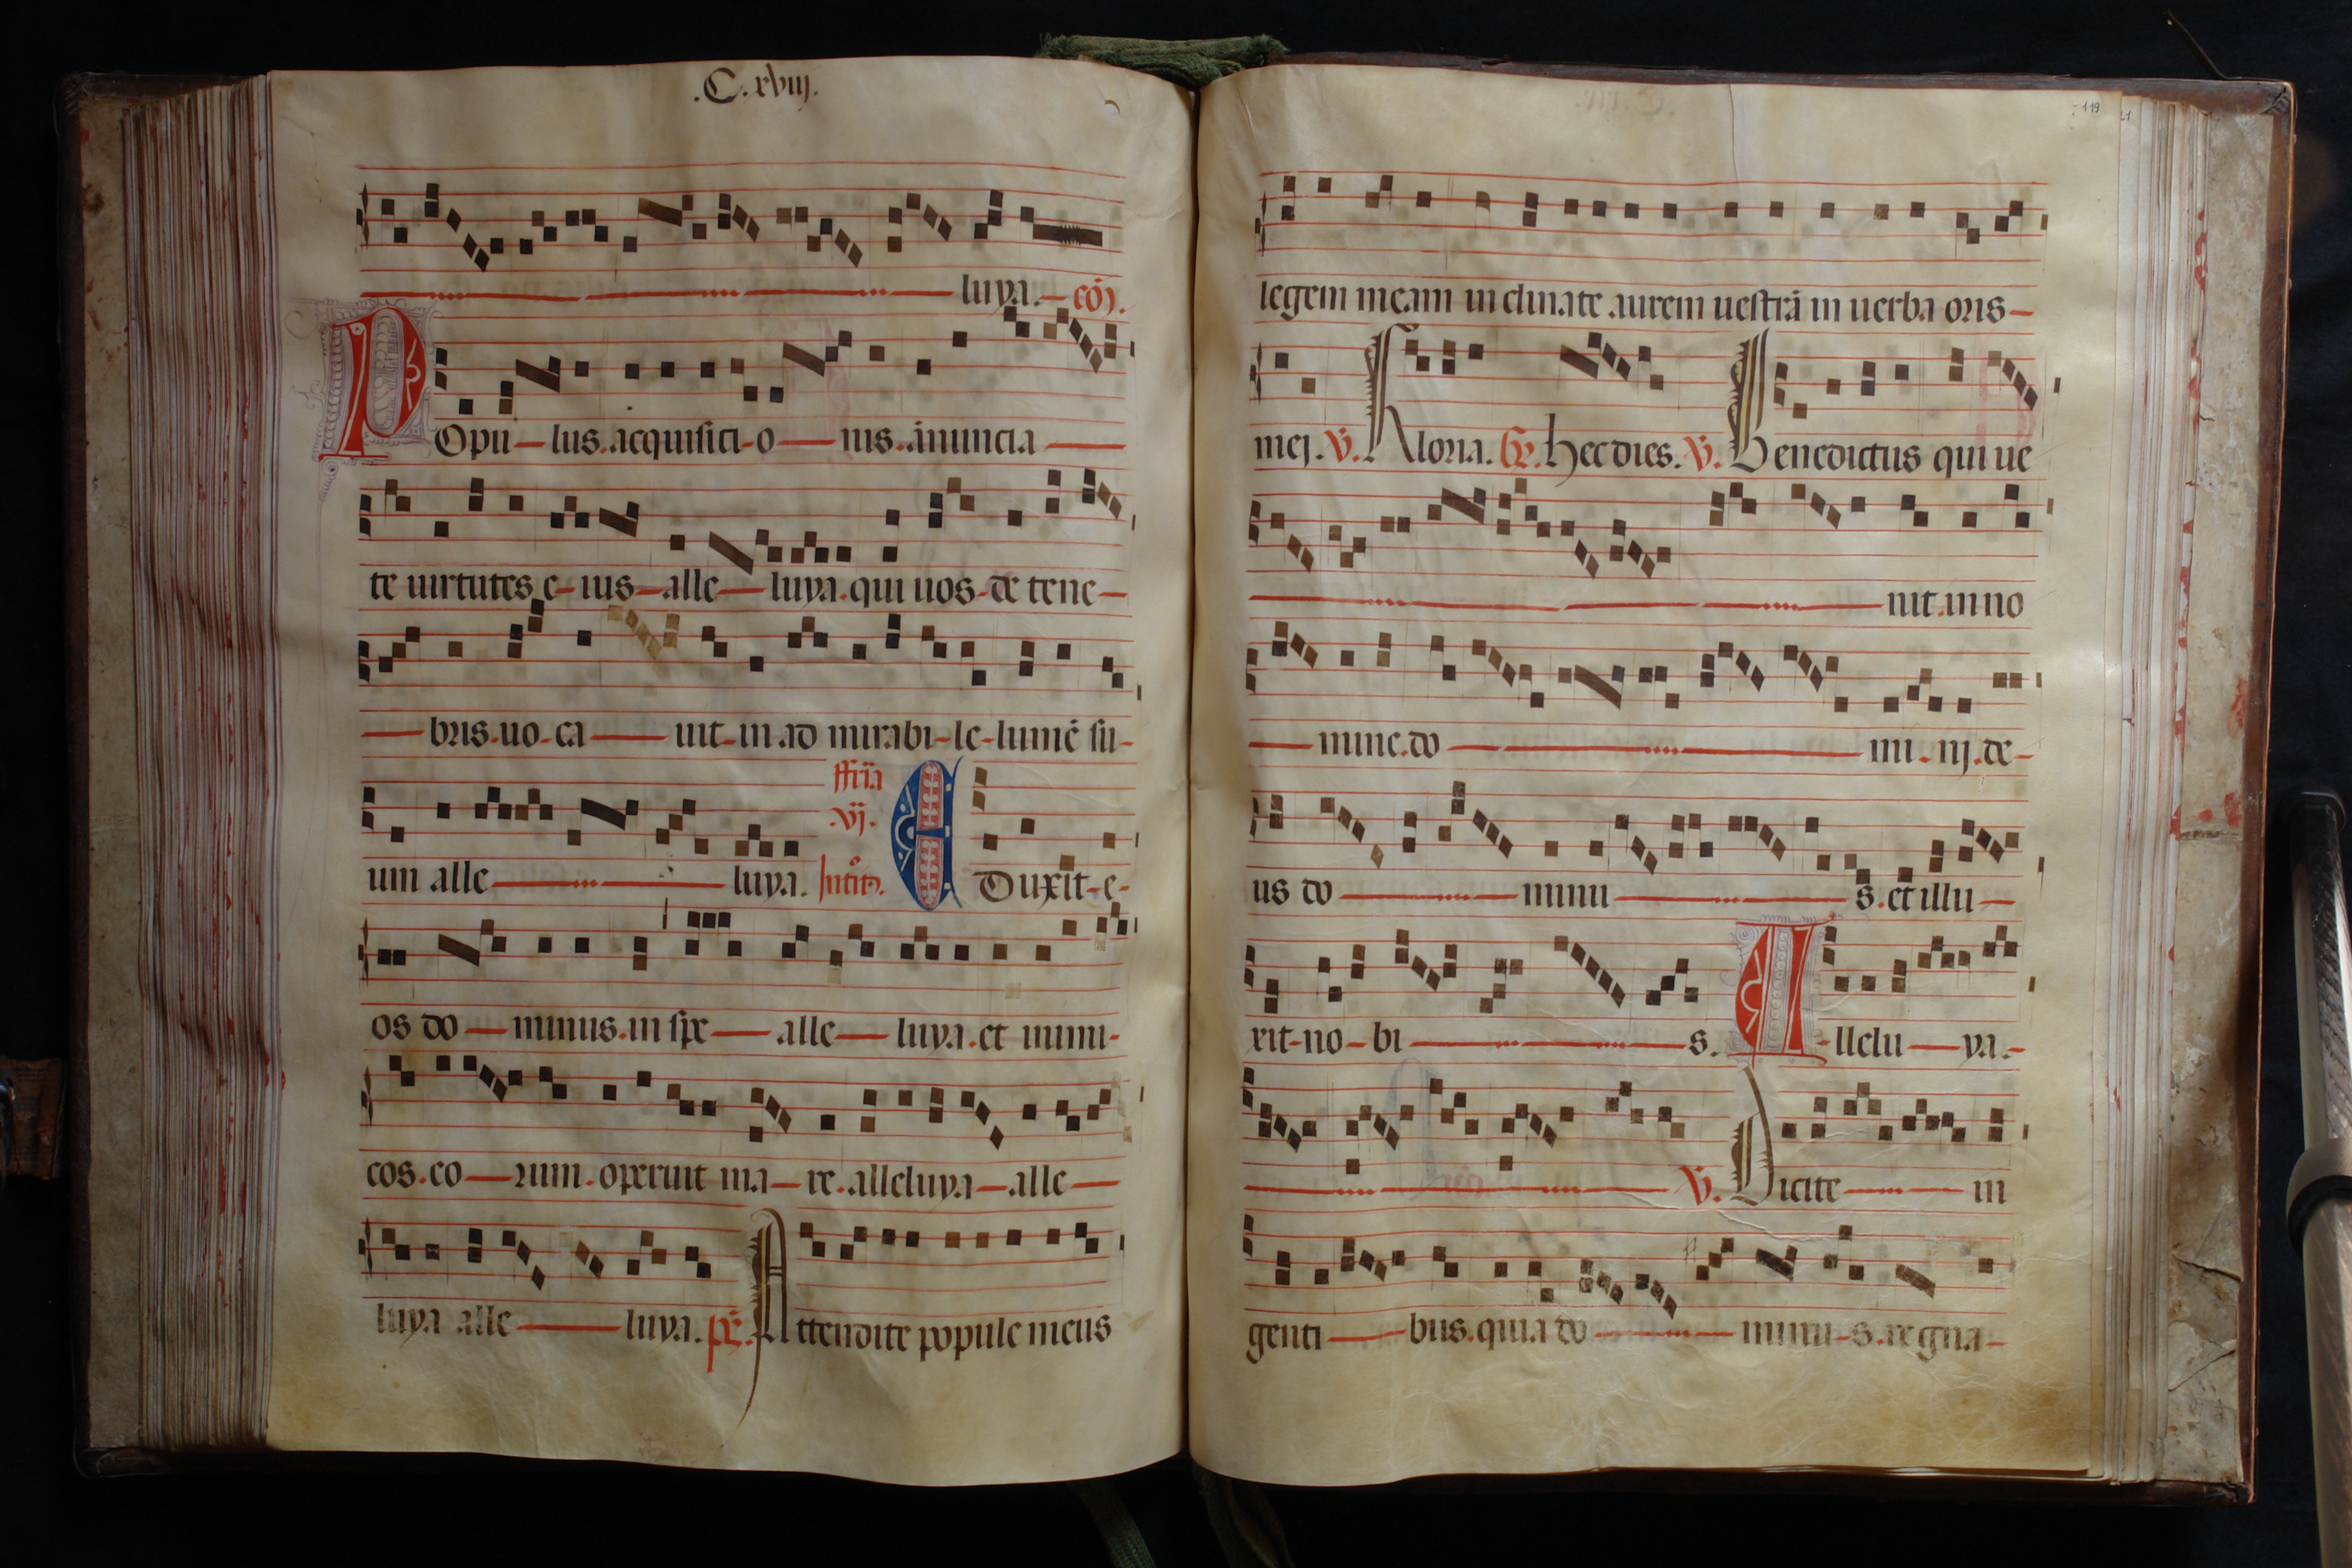 .C.xviij.
luya. cō.
POpu lus. acquisici o nis. ānuncia
te uirtutes e ius alle luya. qui uos de tene
bris. uo ca uit in ad mirabi le lumē su
fferia
.vj.
um alle luya. Introit9. EDuxit e
os do minus. in spe alle luya. et inimi
cos. eo rum. operuit ma re. alleluya alle
luya alle luya. ps. Attendite popule meus
119
legem meam inclinate aurem uestrā in uerba oris
mej. V. Gloria. Gr. hec dies. V. Benedictus qui ue
nit. in no
mine. do mi nj. de
us do minu s. et illu
xit no bi s. Allelu ya.
V. Dicite in
genti bus. quia do minu s. regna